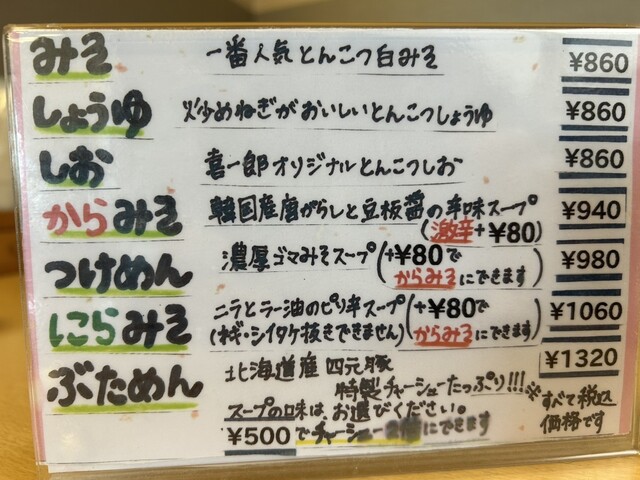 みそ 一番人気とんこつ白みそ ¥860
しょうゆ 炒めねぎがおいしいとんこつしょうゆ ¥860
しお 喜一郎オリジナルとんこつしお ¥860
からみそ 韓国産唐がらしと豆板醤の辛味スープ ¥940
(激辛+¥80)
つけめん 濃厚ゴマみそスープ (+¥80でからみそにできます) ¥980
にらみそ ニラとラー油のピリ辛スープ (+¥80でからみそにできます) ¥1060
(ネギ・シイタケ抜きできません)
ぶためん 北海道産四元豚 ¥1320
特製チャーシューたっぷり!!!
スープの味は、お選びください。
¥500でチャーシュー にできます
※すべて税込
価格です